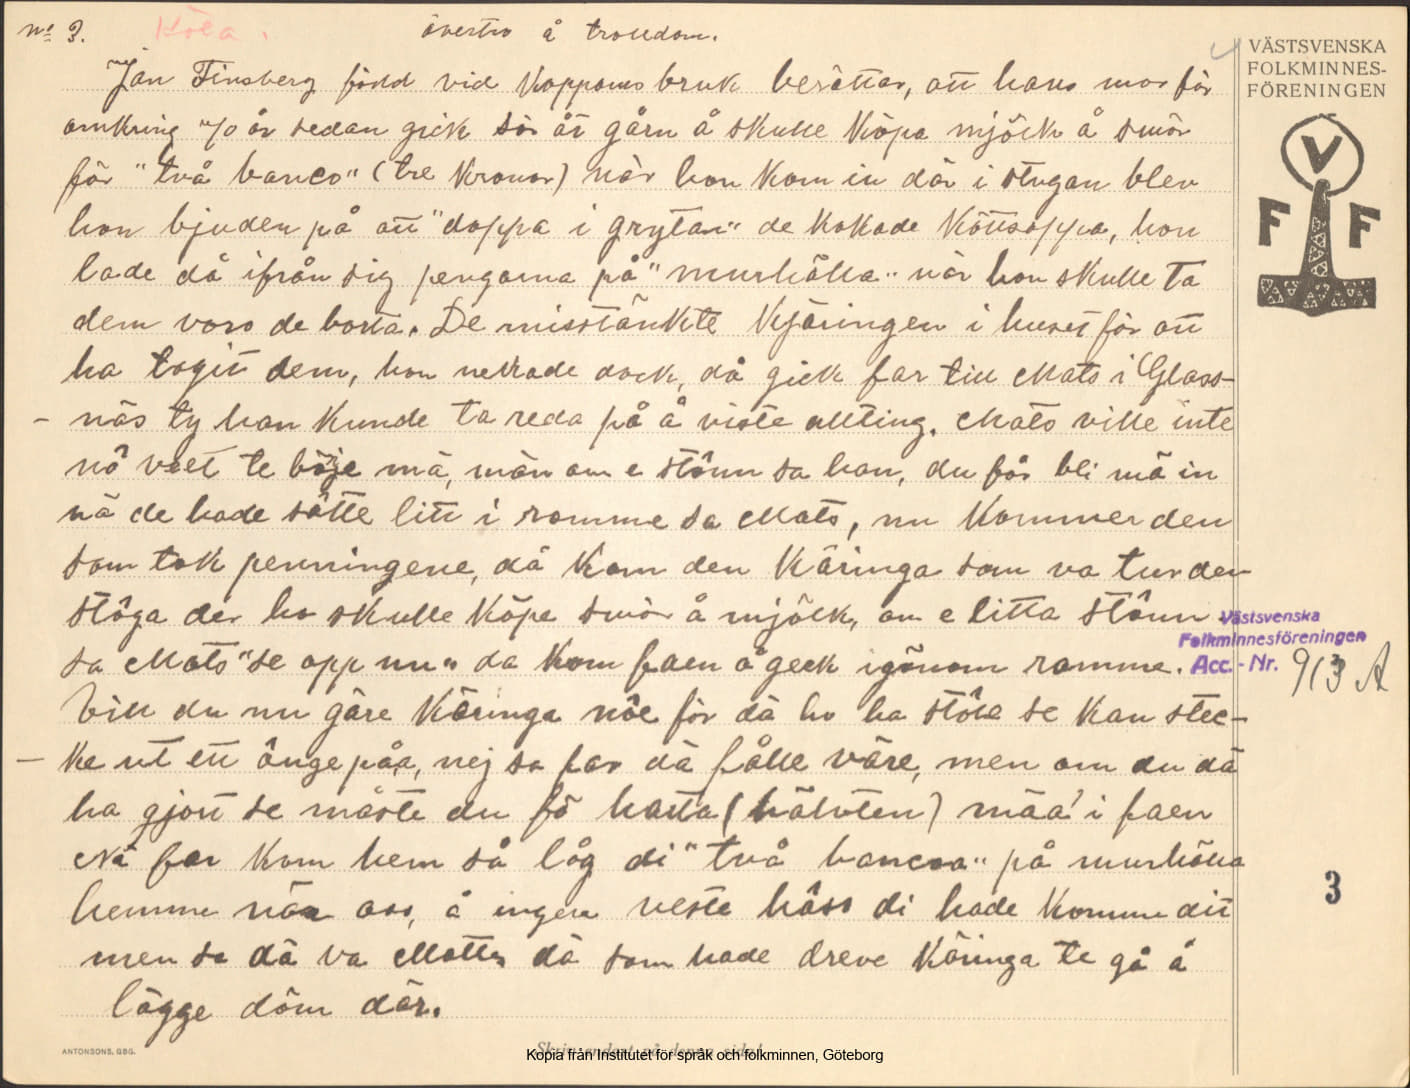 No 3. Köla.
övertro å trolldom.
VÄSTSVENSKA
FOLKMINNES-
FÖRENINGEN
V
F F
Jan Finsberg född vid Koppoms bruk berättar, att hans mor för
omkring 70 år sedan gick till en gårn å skulle köpa mjölk å smör
för "två banco" (tre kronor) när hon kom in där i stugan blev
hon bjuden på att "doppa i grytan" de kokade köttsoppa, hon
lade då ifrån sig pengarna på "murhälla" när hon skulle ta
dem voro de borta. De misstänkte kjäringen i huset för att
ha tagit dem, hon nekade dock, då gick far till Mats i Glass-
näs ty han kunde ta reda på å viste allting. Mats ville inte
nô veet te böje mä, män om e stônn sa han, du får bli mä in
nä de hade sôtte litt i romme sa Mats, nu kommer den
som tok penningene, dä kom den käringa som va tur den
stôga der ho skulle köpe smör å mjölk, om e litta stônn
sa Mats "se opp nu" da kom faen å geck igönom romme.
Vill du nu gäre käringa nôe för dä ho ha stôle se kan stec-
ke ut ett ônge påa, nej sa far dä fålle väre, men om du dä
ha gjort se måste du få hatta (hälvten) mää i faen
Nä far kom hem så låg di "två bancoa" på murhälla
hemme när oss, å ingen veste hôss di hade komme dit
men se dä va Matts dä som hade dreve käringa te gå å
lägge döm där.
Västsvenska
Folkminnesföreningen
Acc.-Nr. 913 A
3
ANTONSONS, GBG.
Skriv endast på denna sida!
Kopia från Institutet för språk och folkminnen, Göteborg